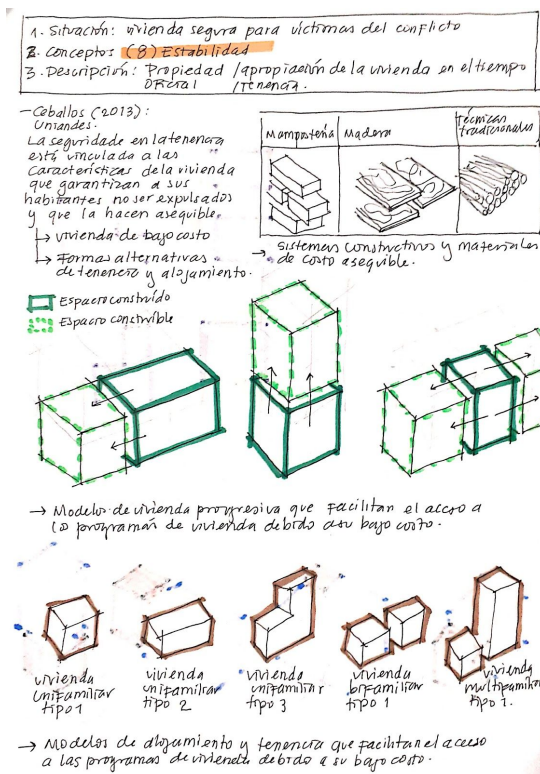 1. Situación: vivienda segura para víctimas del conflicto
2. Conceptos (8) Estabilidad
3. Descripción: Propiedad / apropiación de la vivienda en el tiempo
oficial / tenencia.
- Ceballos (2013):
Uniandes.
La seguridade en la tenencia
está vinculada a las
características de la vivienda
que garantizan a sus
habitantes no ser expulsados
y que la hacen asequible.
↳ vivienda de bajo costo
↳ Formas alternativas
de tenencia y alojamiento.
Mampostería
Madera
Técnicas
tradicionales
→ Sistemas constructivos y materiales
de costo asequible.
Espacio construído
Espacio construible
→ Modelos de vivienda progresiva que facilitan el acceso a
los programas de vivienda debido a su bajo costo.
vivienda
unifamiliar
tipo 1
vivienda
unifamiliar
tipo 2
vivienda
unifamiliar
tipo 3
vivienda
bifamiliar
tipo 1
vivienda
multifamiliar
tipo 1.
→ Modelos de alojamiento y tenencia que facilitan el acceso
a las programas de vivienda debido a su bajo costo.